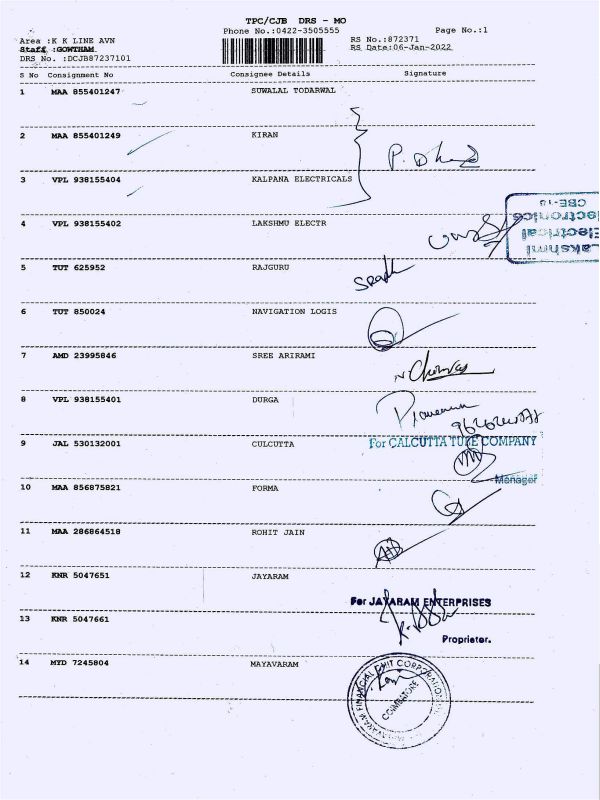 TPC/CJB DRS - MO
Phone No.:0422-3505555 Page No.:1
Area :K K LINE AVN RS No.:872371
Staff :GOWTHAM RS Date:06-Jan-2022
DRS No. :DCJB87237101
S No Consignment No Consignee Details Signature
1 MAA 855401247 SUWALAL TODARWAL
2 MAA 855401249 KIRAN
P. Dh
3 VPL 938155404 KALPANA ELECTRICALS
4 VPL 938155402 LAKSHMU ELECTR
Lakshmi
Electrical
Electronics
CBE-18
5 TUT 625952 RAJGURU
6 TUT 850024 NAVIGATION LOGIS
7 AMD 23995846 SREE ARIRAMI
8 VPL 938155401 DURGA
9 JAL 530132001 CULCUTTA
For CALCUTTA TUBE COMPANY
Manager
10 MAA 856875821 FORMA
11 MAA 286864518 ROHIT JAIN
12 KNR 5047651 JAYARAM
For JAYARAM ENTERPRISES
13 KNR 5047661
Proprietor.
14 MYD 7245804 MAYAVARAM
COIMBATORE